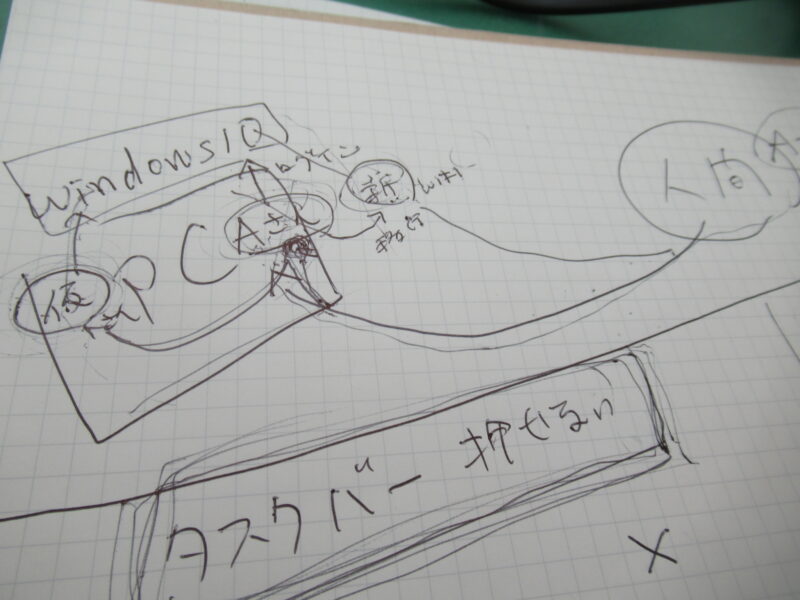 windows10
ログイン
新
Aさん
人間
A
仮
PC
タスクバー 押せない
×